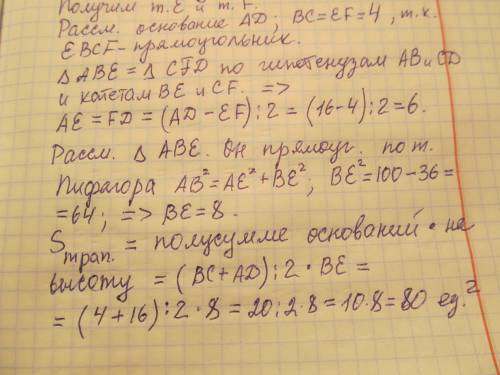 Получим т. E и т. F.
Рассм. основание AD; BC=EF=4, т.к.
EBCF- прямоугольник.
Δ ABE = Δ CFD по гипотенузам AB и CD
и катетам BE и CF. =>
AE = FD = (AD - EF):2 = (16-4):2=6.
Рассм. Δ ABE. Он прямоуг. по т.
Пифагора AB²=AE²+BE²; BE²=100-36=
=64; => BE=8.
Sтрап. = полусумме оснований · на
высоту = (BC+AD):2·BE=
= (4+16):2·8=20:2·8=10·8=80 ед.²